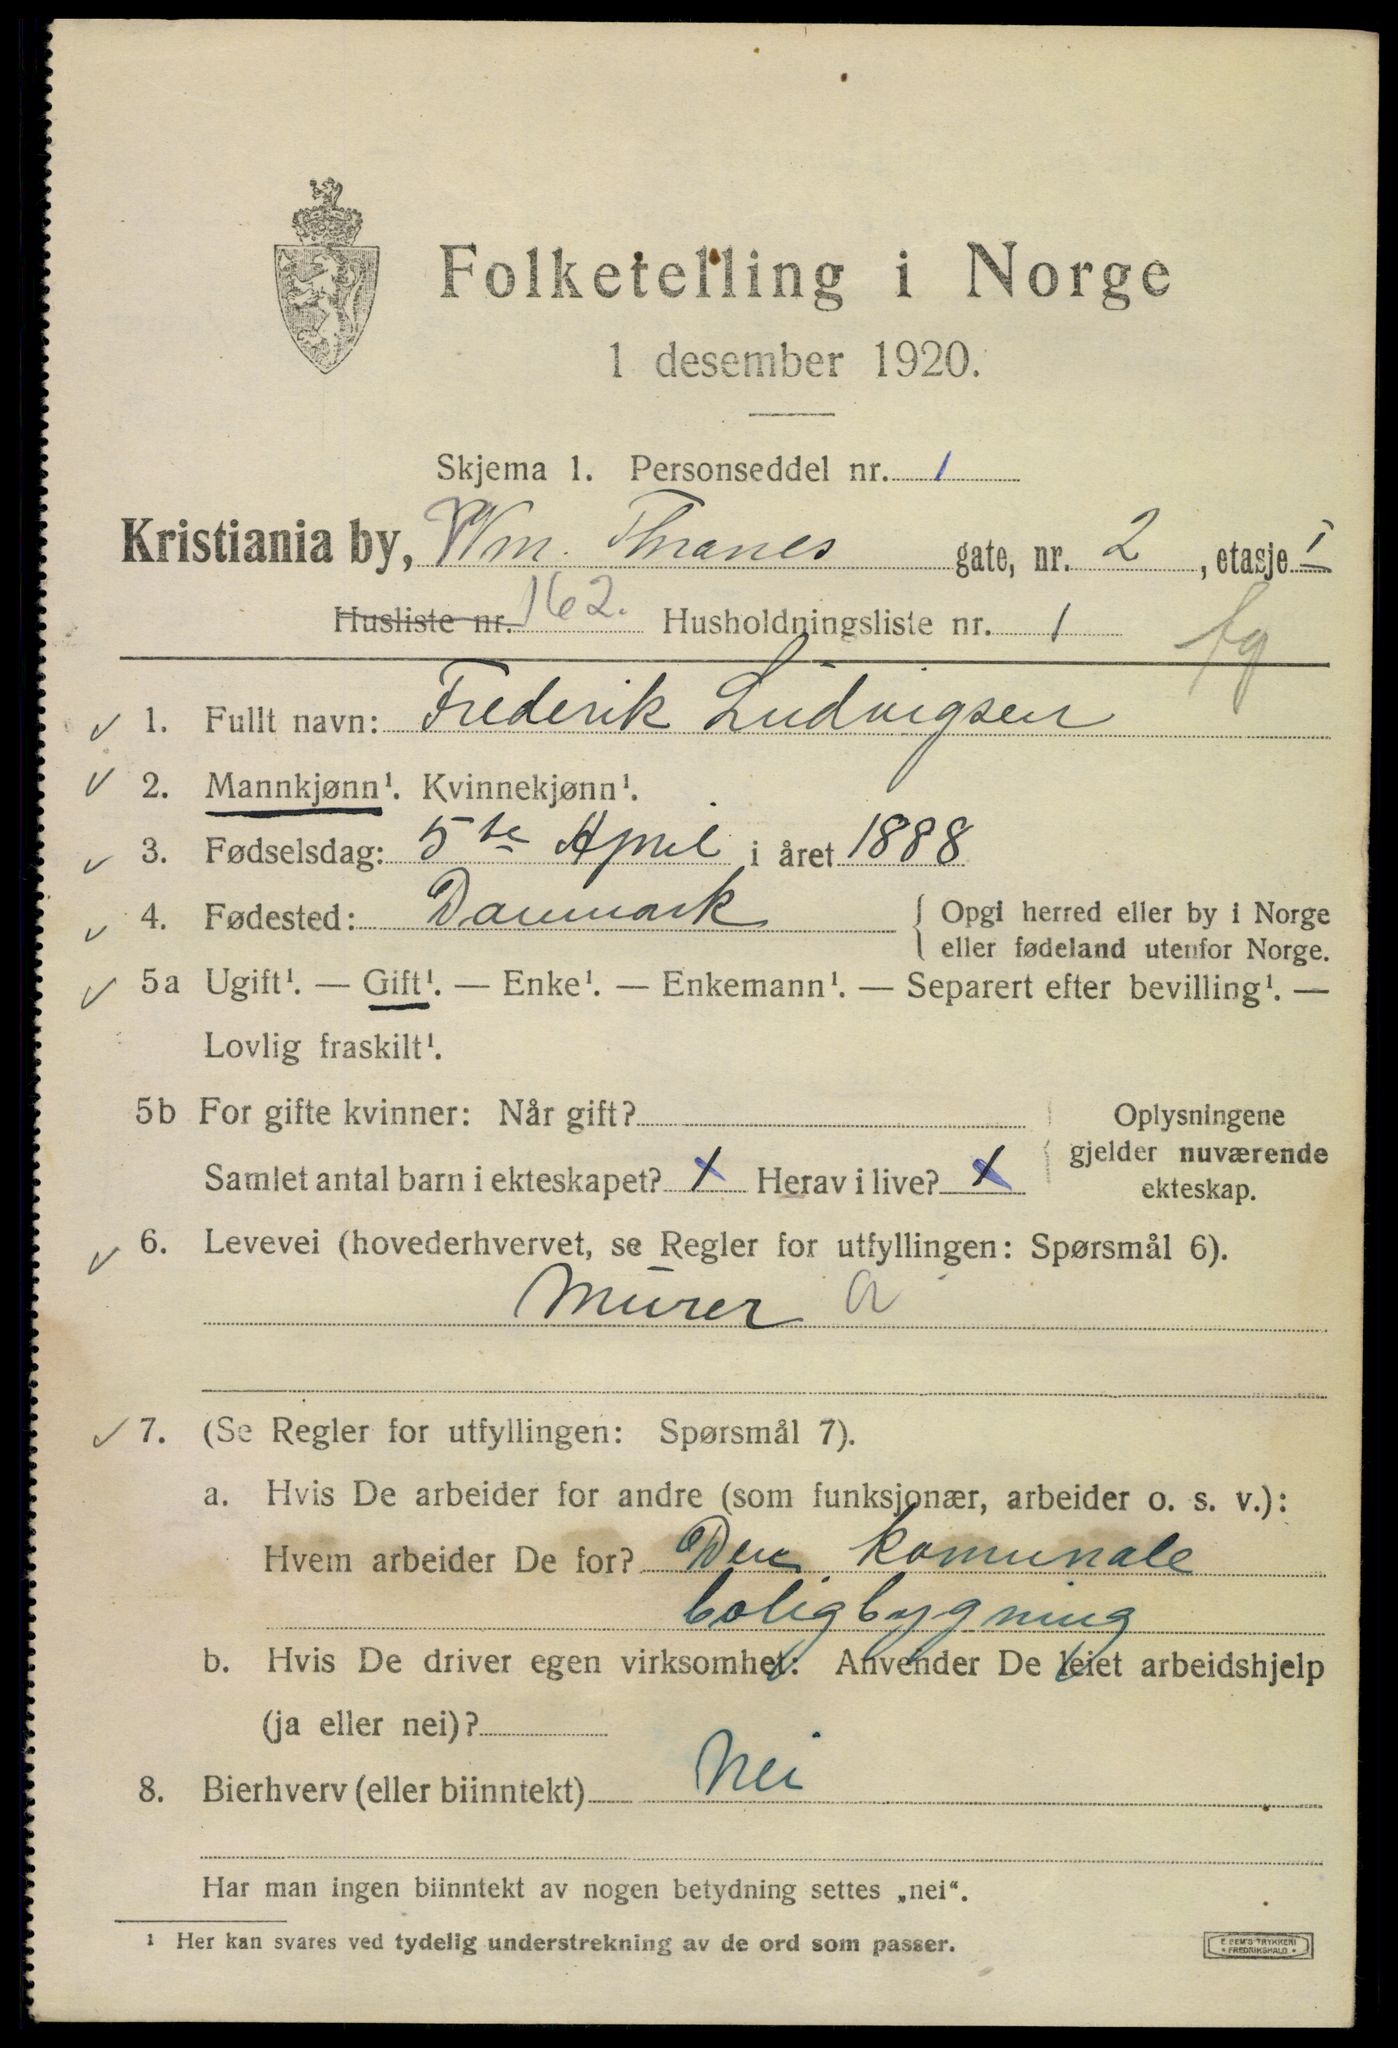 Folketelling i Norge
1 desember 1920.
Skjema 1. Personseddel nr. 1
Kristiania by, Wm. Thranes gate, nr. 2, etasje I
Husliste nr. 162. Husholdningsliste nr. 1
fg
1. Fullt navn: Frederik Ludvigsen
2. Mannkjønn¹. Kvinnekjønn¹.
3. Fødselsdag: 5te April i året 1888
4. Fødested: Danmark { Opgi herred eller by i Norge
eller fødeland utenfor Norge.
5a Ugift¹. — Gift¹. — Enke¹. — Enkemann¹. — Separert efter bevilling¹. —
Lovlig fraskilt¹.
5b For gifte kvinner: Når gift? Oplysningene
gjelder nuværende
ekteskap.
Samlet antal barn i ekteskapet? 1 Herav i live? 1
6. Levevei (hovederhvervet, se Regler for utfyllingen: Spørsmål 6).
Murer a
7. (Se Regler for utfyllingen: Spørsmål 7).
a. Hvis De arbeider for andre (som funksjonær, arbeider o. s. v.):
Hvem arbeider De for? Den komunale
boligbygning
b. Hvis De driver egen virksomhet: Anvender De leiet arbeidshjelp
(ja eller nei)?
8. Bierhverv (eller biinntekt) Nei
Har man ingen biinntekt av nogen betydning settes „nei“.
¹ Her kan svares ved tydelig understrekning av de ord som passer.
E. SEM'S TRYKKERI
• FREDRIKSHALD •